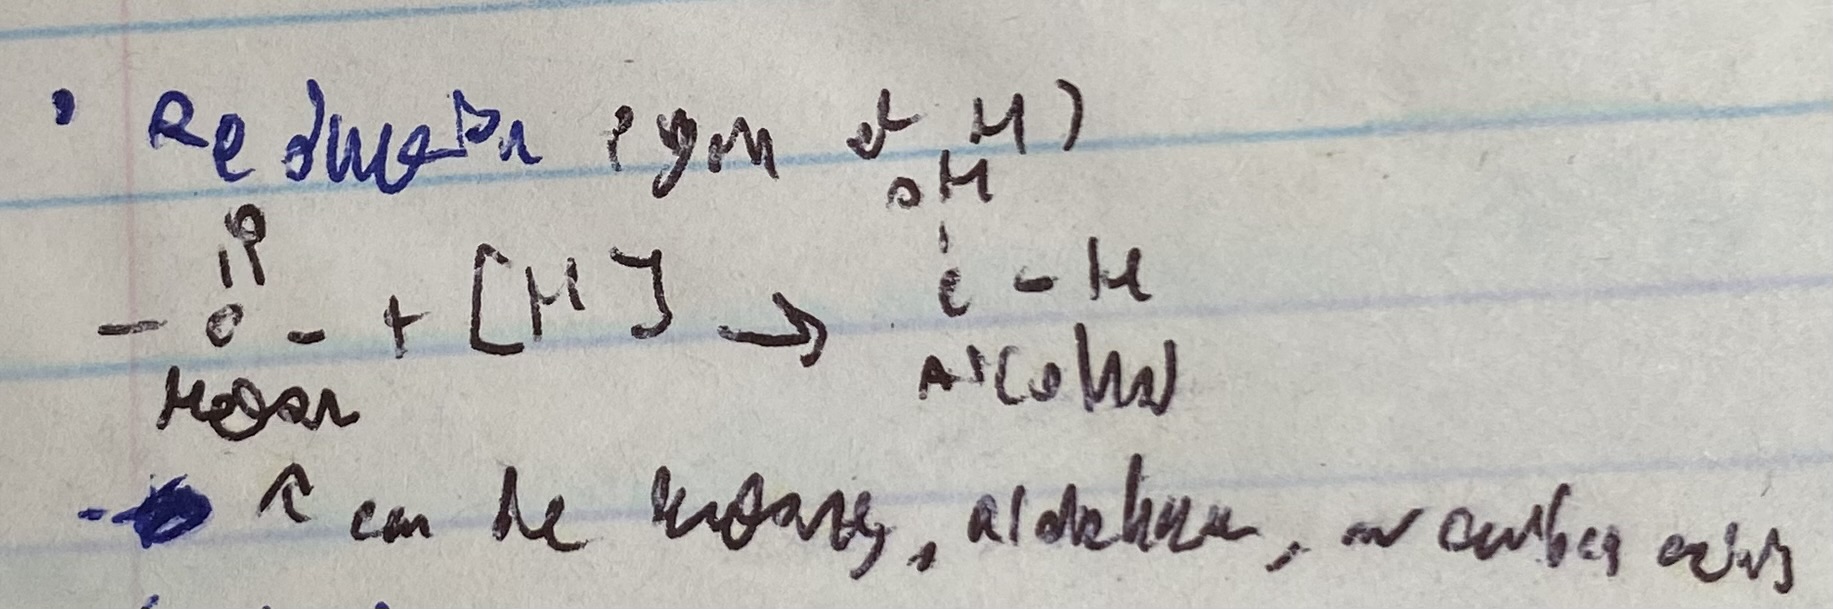 • Reduction (gain of H)
O OH
|| |
- C - + [H] → C - H
Ketone Alcohol
- can be ketones, aldehyde, or carboxy acids